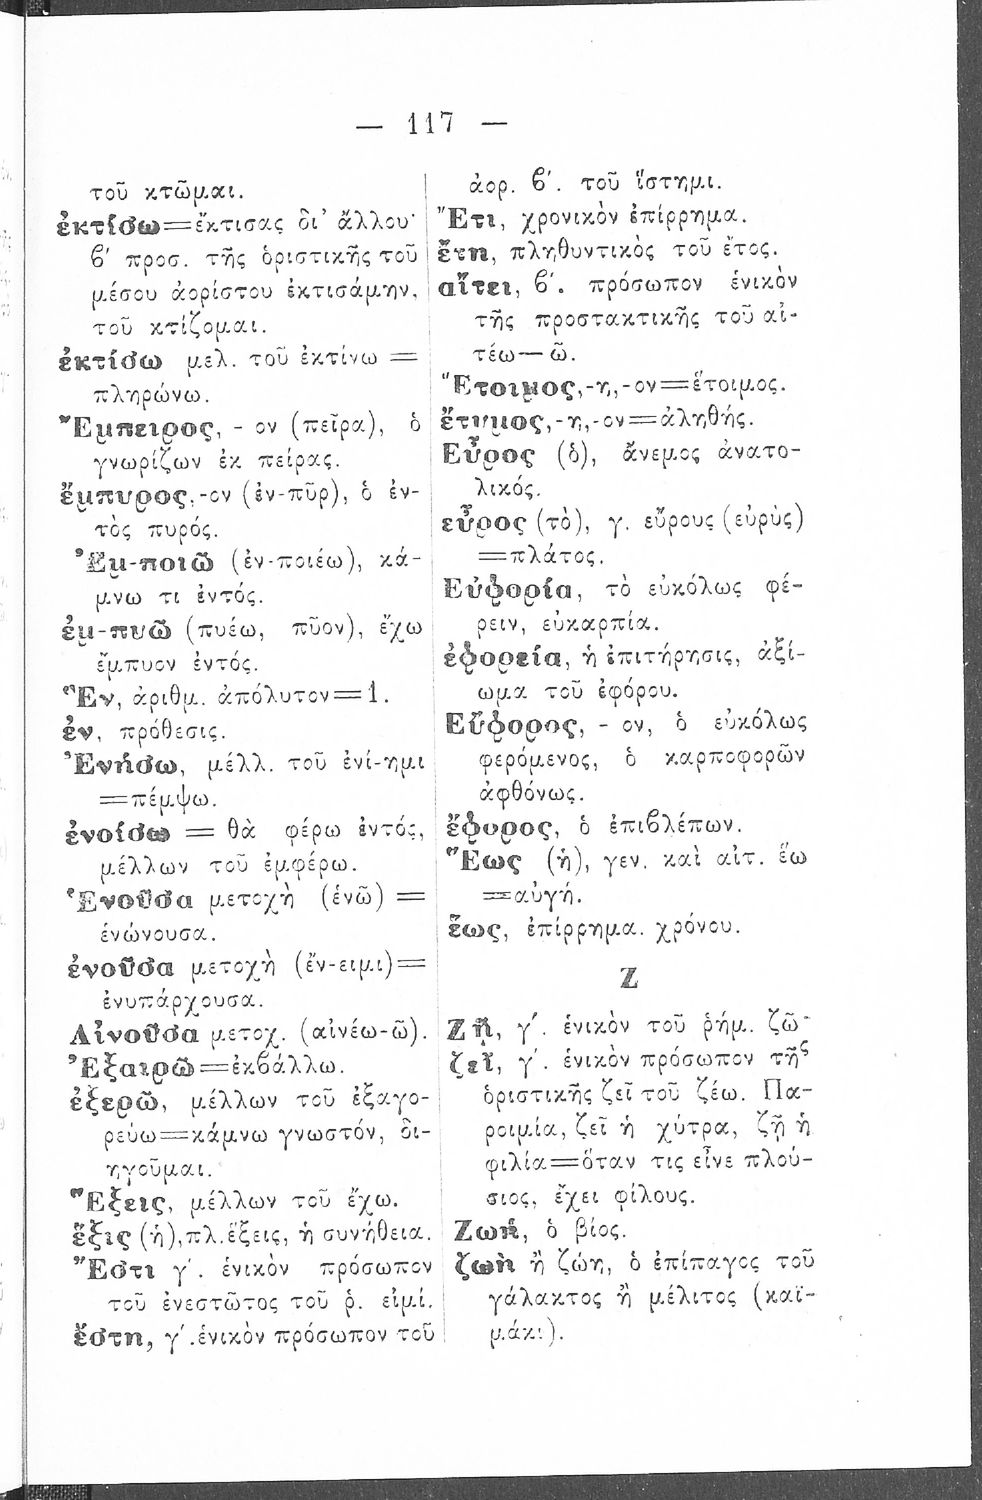 — 117 —
τοῦ κτῶμαι.
ἐκτίσω=ἔκτισας δι' ἄλλου·
β′ προσ. τῆς ὁριστικῆς τοῦ
μέσου ἀορίστου ἐκτισάμην,
τοῦ κτίζομαι.
ἐκτίσω μελ. τοῦ ἐκτίνω =
πληρώνω.
Ἔμπειρος, - ον (πεῖρα), ὁ
γνωρίζων ἐκ πείρας.
ἔμπυρος,-ον (ἐν-πῦρ), ὁ ἐν-
τὸς πυρός.
Ἐμ-ποιῶ (ἐν-ποιέω), κά-
μνω τι ἐντός.
ἐμ-πυῶ (πυέω, πῦον), ἔχω
ἔμπυον ἐντός.
Ἓν, ἀριθμ. ἀπόλυτον=1.
ἐν, πρόθεσις.
Ἐνήσω, μέλλ. τοῦ ἐνί-ημι
=πέμψω.
ἐνοίσω = θὰ φέρω ἐντός,
μέλλων τοῦ ἐμφέρω.
Ἑνοῦσα μετοχὴ (ἑνῶ) =
ἑνώνουσα.
ἐνοῦσα μετοχὴ (ἔν-ειμι)=
ἐνυπάρχουσα.
Αἰνοῦσα μετοχ. (αἰνέω-ῶ).
Ἐξαιρῶ=ἐκβάλλω.
ἐξερῶ, μέλλων τοῦ ἐξαγο-
ρεύω=κάμνω γνωστόν, δι-
ηγοῦμαι.
Ἕξεις, μέλλων τοῦ ἔχω.
ἕξις (ἡ),πλ.ἕξεις, ἡ συνήθεια.
Ἔστι γ′. ἑνικὸν πρόσωπον
τοῦ ἐνεστῶτος τοῦ ῥ. εἰμί.
ἔστη, γ′.ἑνικὸν πρόσωπον τοῦ
ἀορ. β′. τοῦ ἵστημι.
Ἔτι, χρονικὸν ἐπίρρημα.
ἔτη, πληθυντικὸς τοῦ ἔτος.
αἴτει, β′. πρόσωπον ἑνικὸν
τῆς προστακτικῆς τοῦ αἰ-
τέω—ῶ.
Ἕτοιμος,-η,-ον=ἕτοιμος.
ἔτυμος,-η,-ον=ἀληθής.
Εὖρος (ὁ), ἄνεμος ἀνατο-
λικός.
εὖρος (τὸ), γ. εὔρους (εὐρὺς)
=πλάτος.
Εὐφορία, τὸ εὐκόλως φέ-
ρειν, εὐκαρπία.
ἐφορεία, ἡ ἐπιτήρησις, ἀξί-
ωμα τοῦ ἐφόρου.
Εὔφορος, - ον, ὁ εὐκόλως
φερόμενος, ὁ καρποφορῶν
ἀφθόνως.
ἔφορος, ὁ ἐπιβλέπων.
Ἕως (ἡ), γεν. καὶ αἰτ. ἕω
=αὐγή.
ἕως, ἐπίρρημα. χρόνου.
Ζ
Ζῇ, γ′. ἑνικὸν τοῦ ῥήμ. ζῶ·
ζεῖ, γ′. ἑνικὸν πρόσωπον τῆς
ὁριστικῆς ζεῖ τοῦ ζέω. Πα-
ροιμία, ζεῖ ἡ χύτρα, ζῇ ἡ
φιλία=ὅταν τις εἶνε πλού-
σιος, ἔχει φίλους.
Ζωή, ὁ βίος.
ζωὴ ἢ ζώη, ὁ ἐπίπαγος τοῦ
γάλακτος ἢ μέλιτος (καϊ-
μάκι).